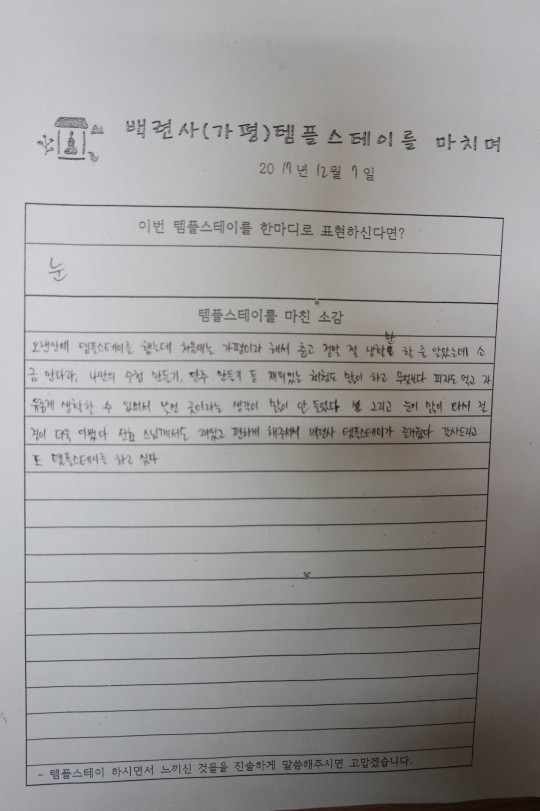 백련사(가평)템플스테이를 마치며
2017년 12월 7일
이번 템플스테이를 한마디로 표현하신다면?
눈
템플스테이를 마친 소감
오랜만에 템플스테이를 했는데 처음에는 가평이라 해서 춥고 정말 절 생활만 할 줄 알았는데 소
금 만다라, 나만의 수첩 만들기, 단주 만들기 등 재미있는 체험도 많이 하고 무엇보다 피자도 먹고 자
유롭게 생활할 수 있어서 낯선 곳이라는 생각이 많이 안 들었다. 그리고 눈이 많이 와서 절
경이 더욱 이뻤다 스님께서도 재밌고 편하게 해주셔서 백련사 템플스테이가 즐거웠다 감사드리고
또 템플스테이를 하고 싶다
- 템플스테이 하시면서 느끼신 것들을 진솔하게 말씀해주시면 고맙겠습니다.